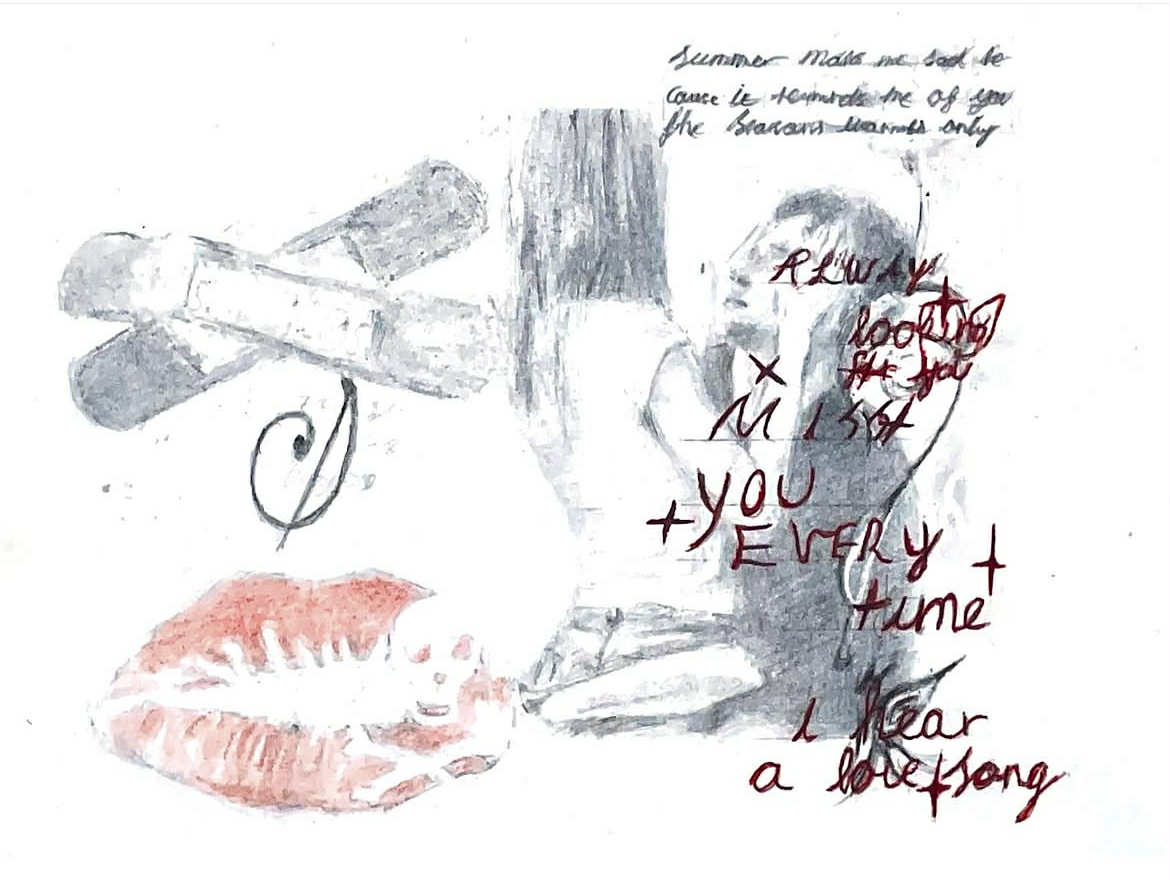 Summer make me sad be
cause it reminds me of you
the seasons warmes only
ALWAY
looking
for you
MISS
YOU
EVERY
time
i hear
a love song